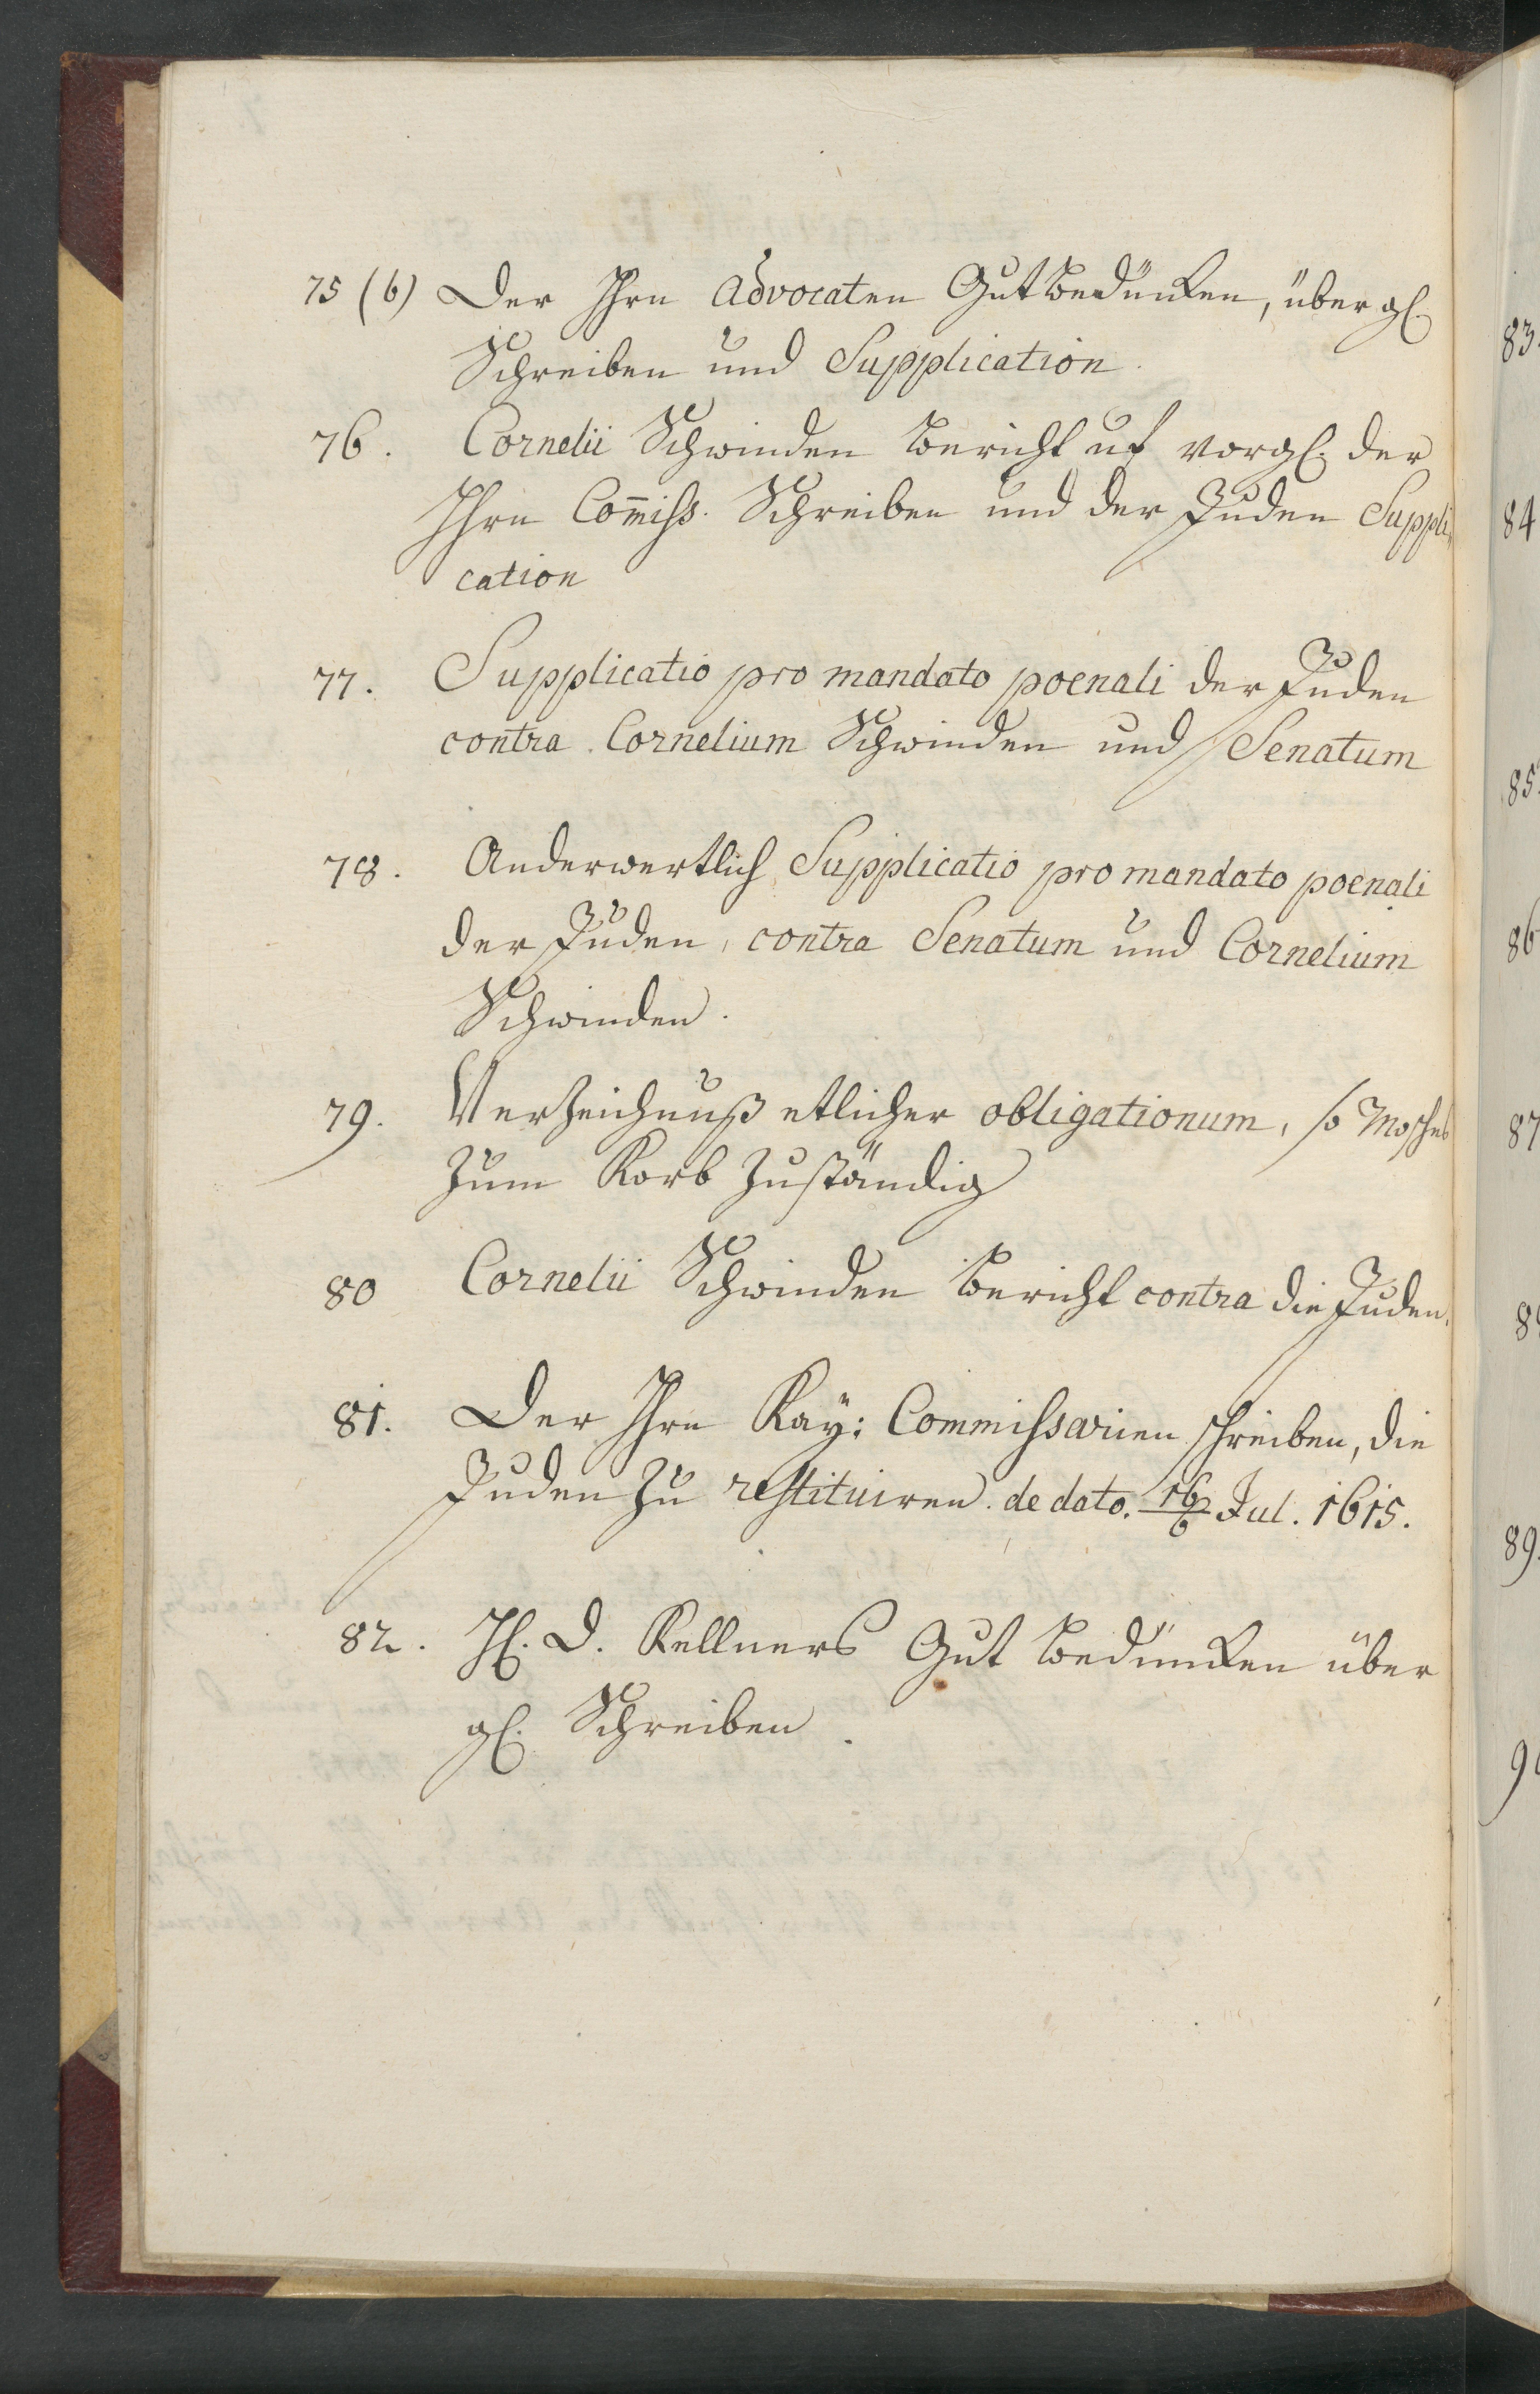 75 (b) Der Hrn Advocaten Gutbedüncken, über gl.
Schreiben und Supplication.
76. Cornelii Schwinden Bericht uf vorgl. der
Hrn Com̄iss. Schreiben und der Juden Suppli„
cation
77. Supplicatio pro mandato poenali der Juden
contra Cornelium Schwinden und Senatum
78. Anderwertlich Supplicatio pro mandato poenali
der Juden, contra Senatum und Cornelium
Schwinden.
79. Verzeichnuß etlicher obligationum, so Mosches
zum Korb zuständig
80 Cornelii Schwinden Bericht contra die Juden.
81. Der Hrn Kay: Commissarien schreiben, die
Juden zu restituiren. de dato. 16/6 Jul. 1615.
82. H. D. Kellners Gut bedüncken über
gl. Schreiben.
83.
84
85.
86
87
89.